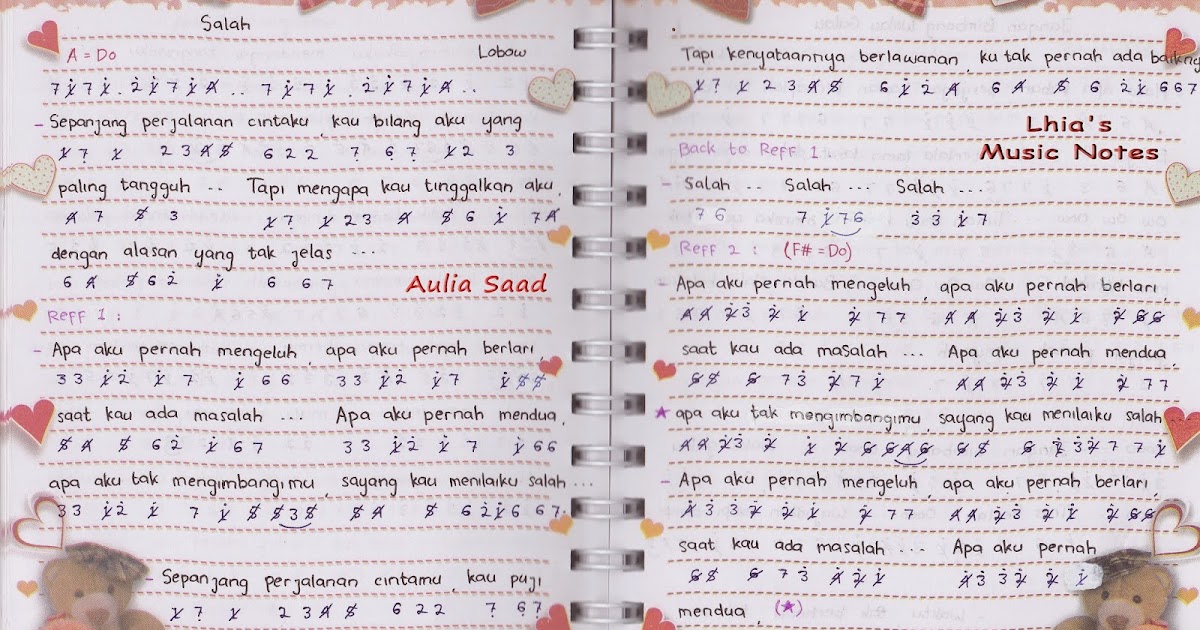 Salah
A = Do Lobow
7 1̸̇ 7 1̸̇ . 2̇ 1̸̇ 7 1̸̇ 4̸ .. 7 1̸̇ 7 1̸̇ . 2̇ 1̸̇ 7 1̸̇ 4̸ ..
- Sepanjang perjalanan cintaku, kau bilang aku yang
1̸ 7̣ 1̸ 2 3 4̸ 5̸ 6 2 2 7̣ 6̣ 7̣ 1̸ 2 3
paling tangguh .. Tapi mengapa kau tinggalkan aku,
4̸ 7 5̸ 3 1̸ 7̣ 1̸ 2 3 4̸ 5̸ 6 1̸̇ 7 4̸
dengan alasan yang tak jelas ...
6 4̸ 5̸ 6 2̇ 1̸̇ 6 6 7
Aulia Saad
Reff 1 :
- Apa aku pernah mengeluh, apa aku pernah berlari,
3 3 1̸̇ 2̇ 1̸̇ 7 1̸̇ 6 6 3 3 1̸̇ 2̇ 1̸̇ 7 1̸̇ 5̸ 5̸
saat kau ada masalah ... Apa aku pernah mendua,
5̸ 4̸ 5̸ 6 2̇ 1̸̇ 6 7 3 3 1̸̇ 2̇ 1̸̇ 7 1̸̇ 6 6
apa aku tak mengimbangimu, sayang kau menilaiku salah ...
3 3 1̸̇ 2̇ 1̸̇ 7 1̸̇ 5̸ 5̸ 3 5̸ 5̸ 4̸ 5̸ 6 2̇ 1̸̇ 6 6 7
- Sepanjang perjalanan cintamu, kau puji
1̸ 7̣ 1̸ 2 3 4̸ 5̸ 6 2 2 7̣ 6̣ 7̣
Tapi kenyataannya berlawanan, ku tak pernah ada baikny
1̸ 7̣ 1̸ 2 3 4̸ 5̸ 6 1̸̇ 2̇ 4̸ 6 4̸ 5̸ 6 2̇ 1̸̇ 6 6 7
Lhia's
Music Notes
Back to Reff 1 .
- Salah .. Salah ... Salah ...
7 6 7 1̸̇ 7 6 3̇ 3̇ 1̸̇ 7
Reff 2 : (F# = Do)
- Apa aku pernah mengeluh, apa aku pernah berlari,
4̸ 4̸ 2̸̇ 3̇ 2̸̇ 1̸̇ 2̸̇ 7 7 4̸ 4̸ 2̸̇ 3̇ 2̸̇ 1̸̇ 2̸̇ 6̸ 6̸
saat kau ada masalah ... Apa aku pernah mendua,
6̸ 5̸ 6̸ 7 3̇ 2̸̇ 7 1̸̇ 4̸ 4̸ 2̸̇ 3̇ 2̸̇ 1̸̇ 2̸̇ 7 7
★ apa aku tak mengimbangimu, sayang kau menilaiku salah
4̸ 4̸ 2̸̇ 3̇ 2̸̇ 1̸̇ 2̸̇ 6̸ 6̸ 4̸ 6̸ 6̸ 5̸ 6̸ 7̇ 3̇ 2̸̇ 7 7 1̸̇
- Apa aku pernah mengeluh, apa aku pernah berlari,
4̸̇ 3̇ 3̇ 2̸̇ 2̸̇ 1̸̇ 2̸̇ 7 7 4̸ 4̸ 2̸̇ 3̇ 2̸̇ 1̸̇ 2̸̇ 6̸ 6̸
saat kau ada masalah ... Apa aku pernah
6̸ 5̸ 6̸ 7 3̇ 4̸̇ 2̸̇ 1̸̇ 4̸̇ 3̇ 3̇ 2̸̇ 2̸̇ 1̸̇
mendua, (★)